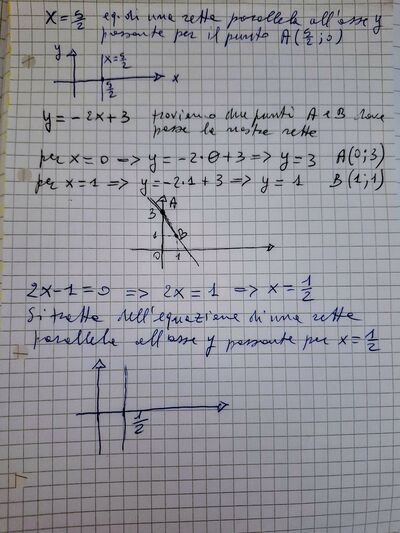 x = 5/2 eq. di una retta parallela all'asse y
passante per il punto A(5/2; 0)
y
x = 5/2
x
5/2
y = -2x + 3 troviamo due punti A e B dove
passa la nostra retta
per x = 0 => y = -2·0 + 3 => y = 3 A(0; 3)
per x = 1 => y = -2·1 + 3 => y = 1 B(1; 1)
A
3
B
1
0 1
2x - 1 = 0 => 2x = 1 => x = 1/2
Si tratta dell'equazione di una retta
parallela all'asse y passante per x = 1/2
1/2